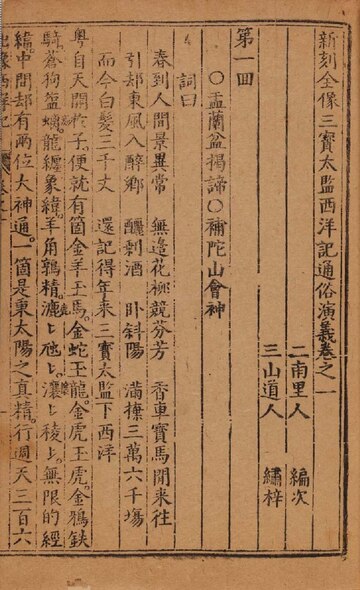 新刻全像三寶太監西洋記通俗演義卷之一
二南里人 編次
三山道人 繡梓
第一回
○盂蘭盆揭諦○補陀山會神
詞曰
春到人間景異常 無邊花柳競芬芳 香車寶馬閒來往
引却東風入醉鄉 釃剩酒 卧斜陽 滿攓三萬六千塲
而今白髮三千丈 還記得年來三寶太監下西洋
粤自天開於子便就有箇金羊玉馬金蛇玉龍金虎玉虎金鴉鉄
騎蒼狗盐螭龍纏象緯羊角鶉精漉ヒ虺ヒ瀼ヒ稜ヒ無限的經
緯中間却有兩位大神通一箇是東太陽之真精行週天三百六